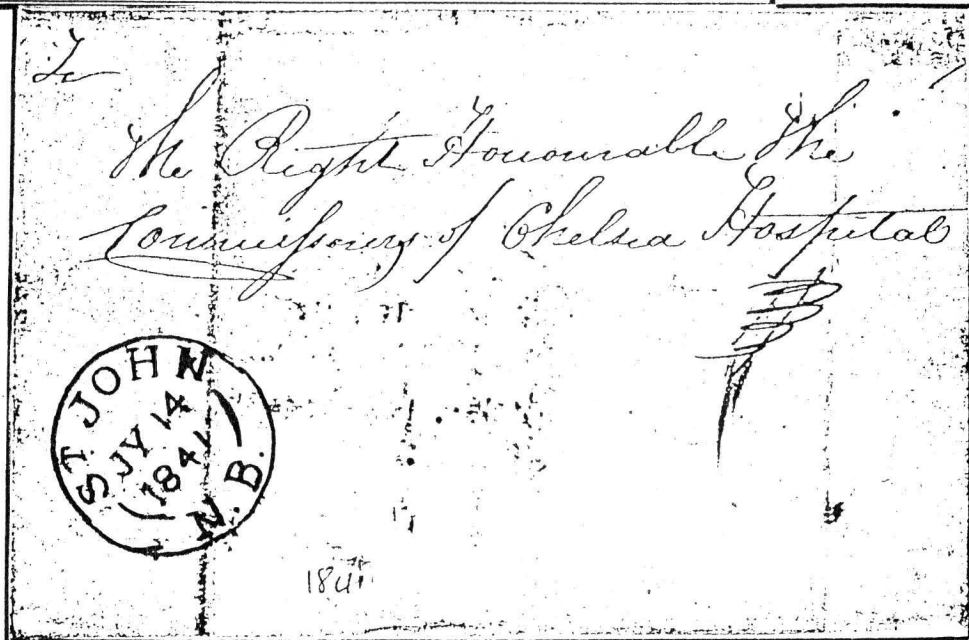 To
The Right Honourable The
Commissioners of Chelsea Hospital
ST. JOHN
JY 14
1841
N.B.
1841